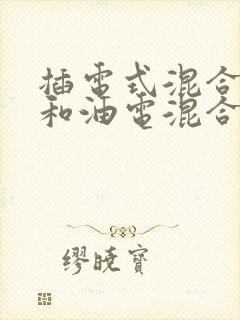 插電式混合
和油電混合
繆曉寶